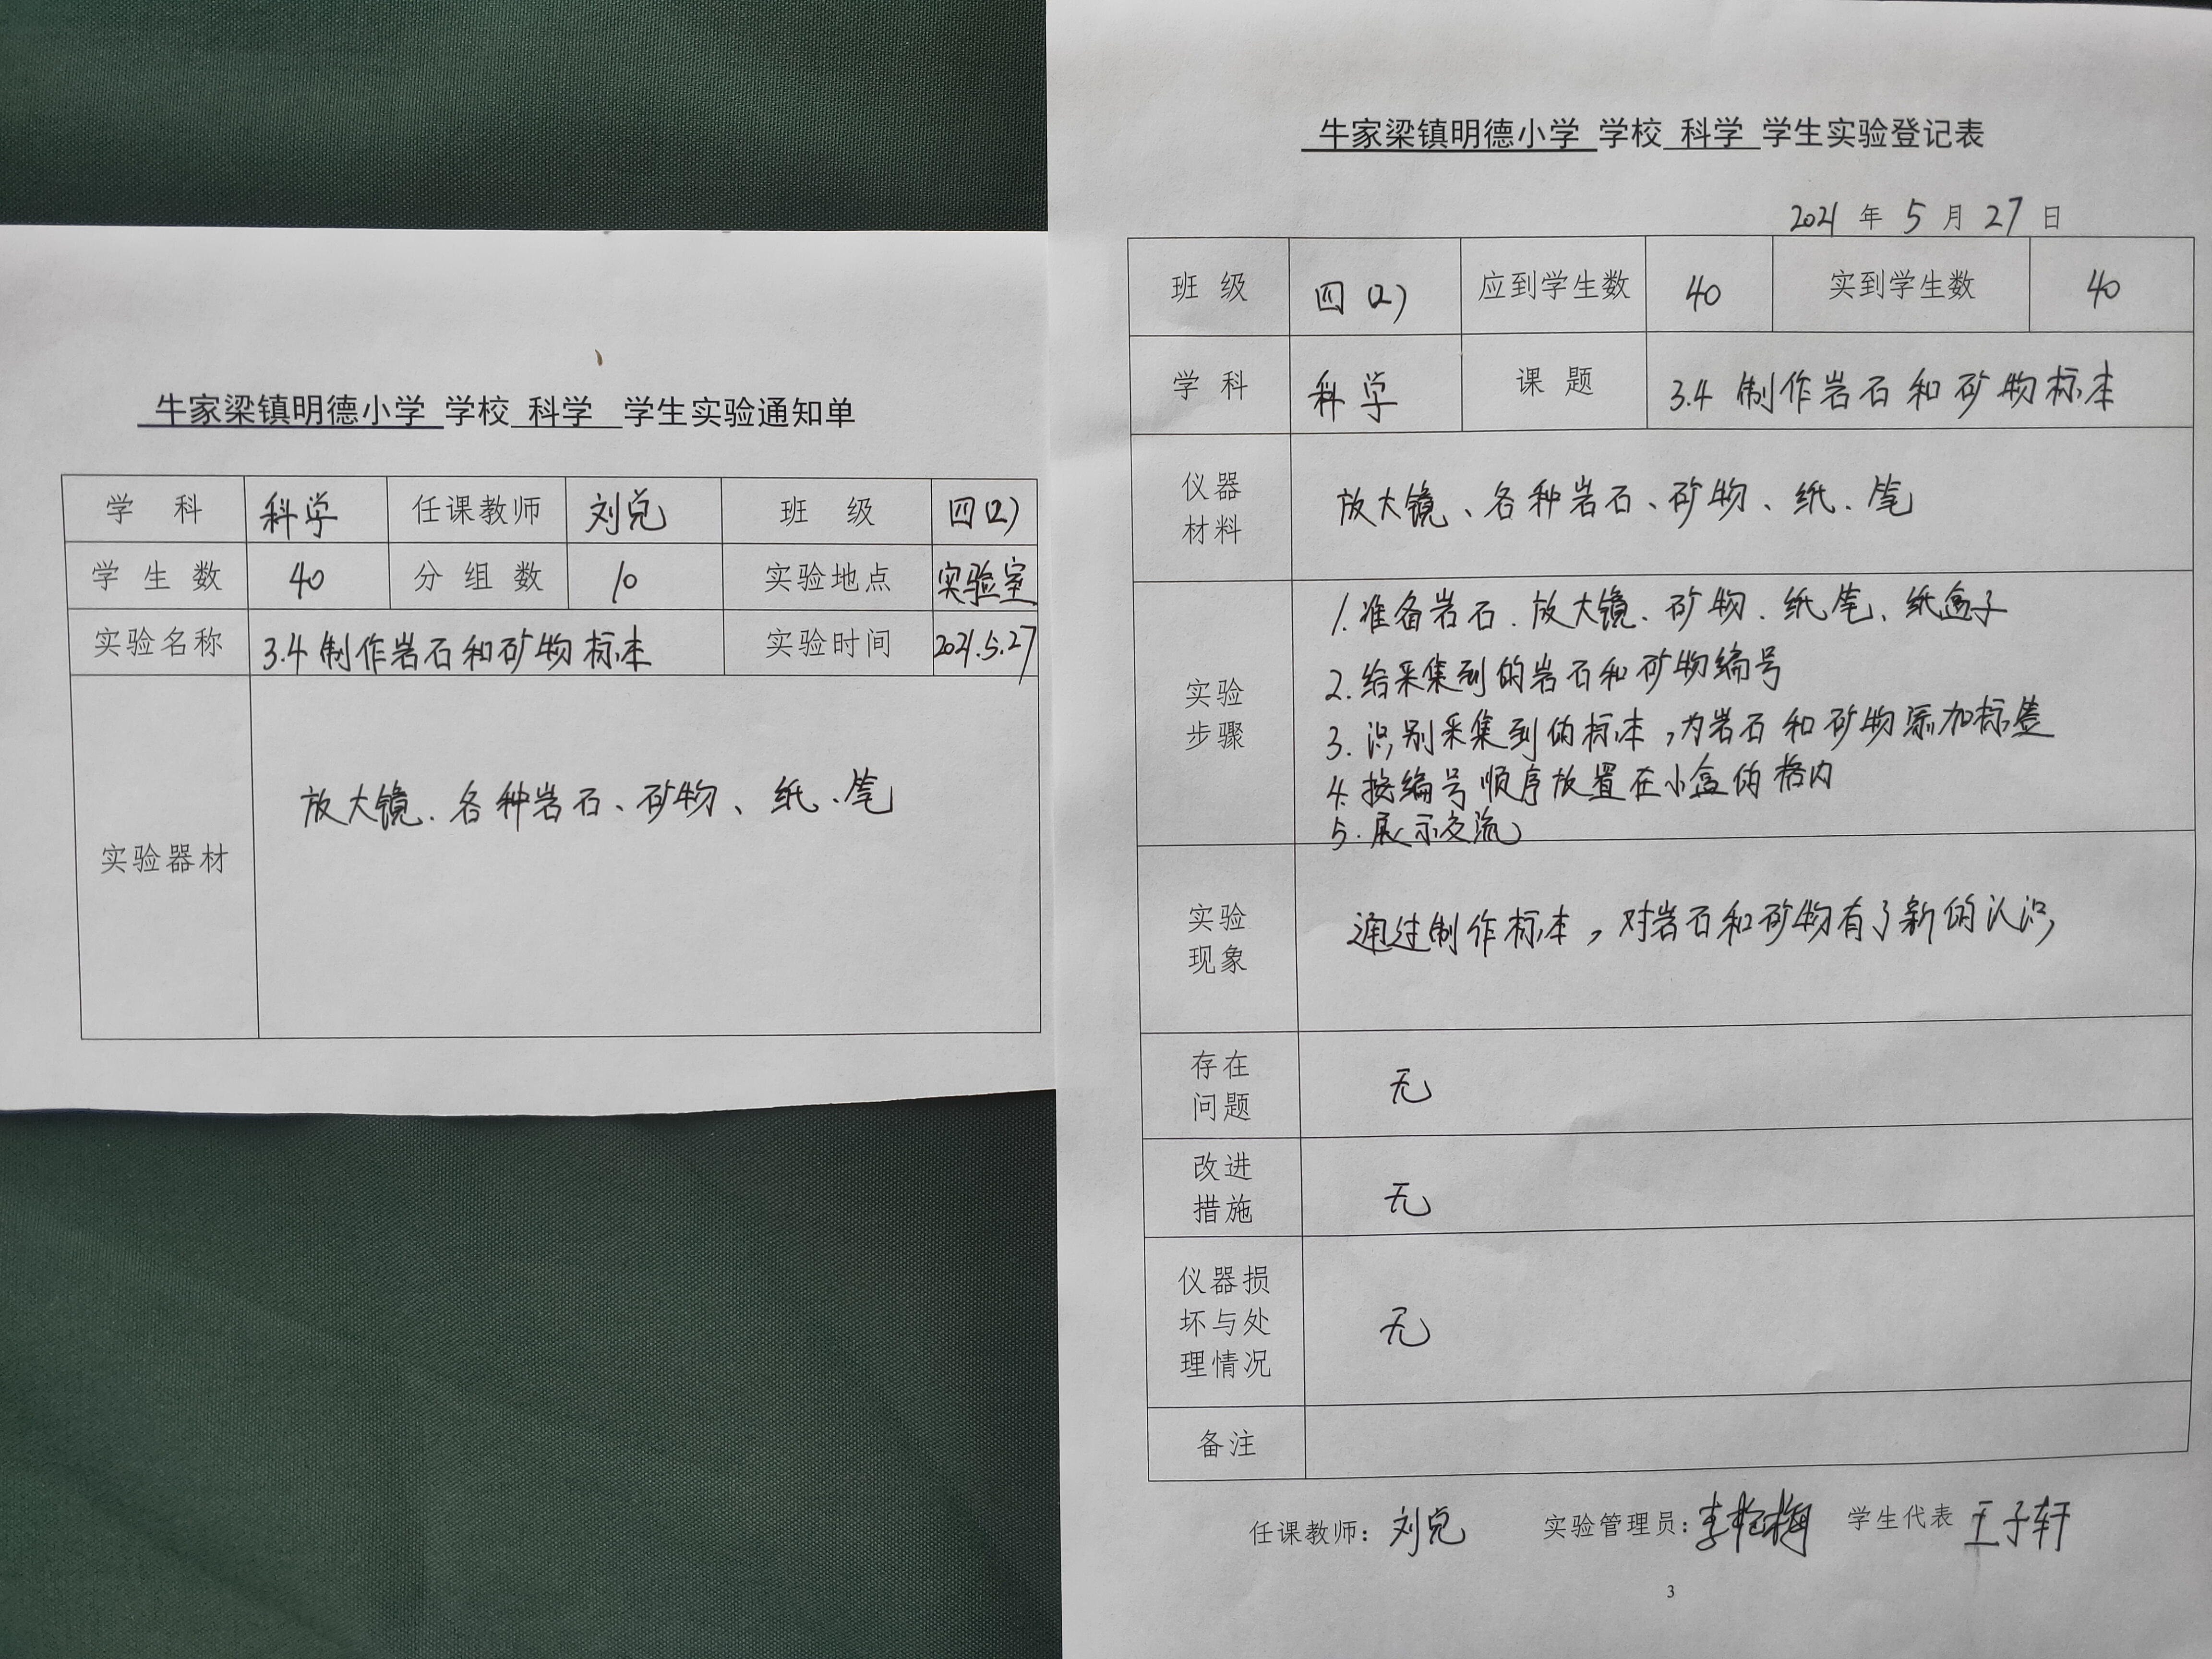 牛家梁镇明德小学 学校 科学 学生实验通知单
学 科 科学 任课教师 刘兑 班 级 四(2)
学 生 数 40 分 组 数 10 实验地点 实验室
实验名称 3.4 制作岩石和矿物标本 实验时间 2021.5.27
实验器材 放大镜、各种岩石、矿物、纸、笔
牛家梁镇明德小学 学校 科学 学生实验登记表
2021 年 5 月 27 日
班 级 四(2) 应到学生数 40 实到学生数 40
学 科 科学 课 题 3.4 制作岩石和矿物标本
仪器
材料
放大镜、各种岩石、矿物、纸、笔
实验
步骤
1.准备岩石、放大镜、矿物、纸笔、纸盒子
2.给采集到的岩石和矿物编号
3.识别采集到的标本,为岩石和矿物添加标签
4.按编号顺序放置在小盒的格内
5.展示交流
实验
现象
通过制作标本,对岩石和矿物有了新的认识
存在
问题
无
改进
措施
无
仪器损
坏与处
理情况
无
备注
任课教师: 刘兑 实验管理员: 学生代表 王子轩
3